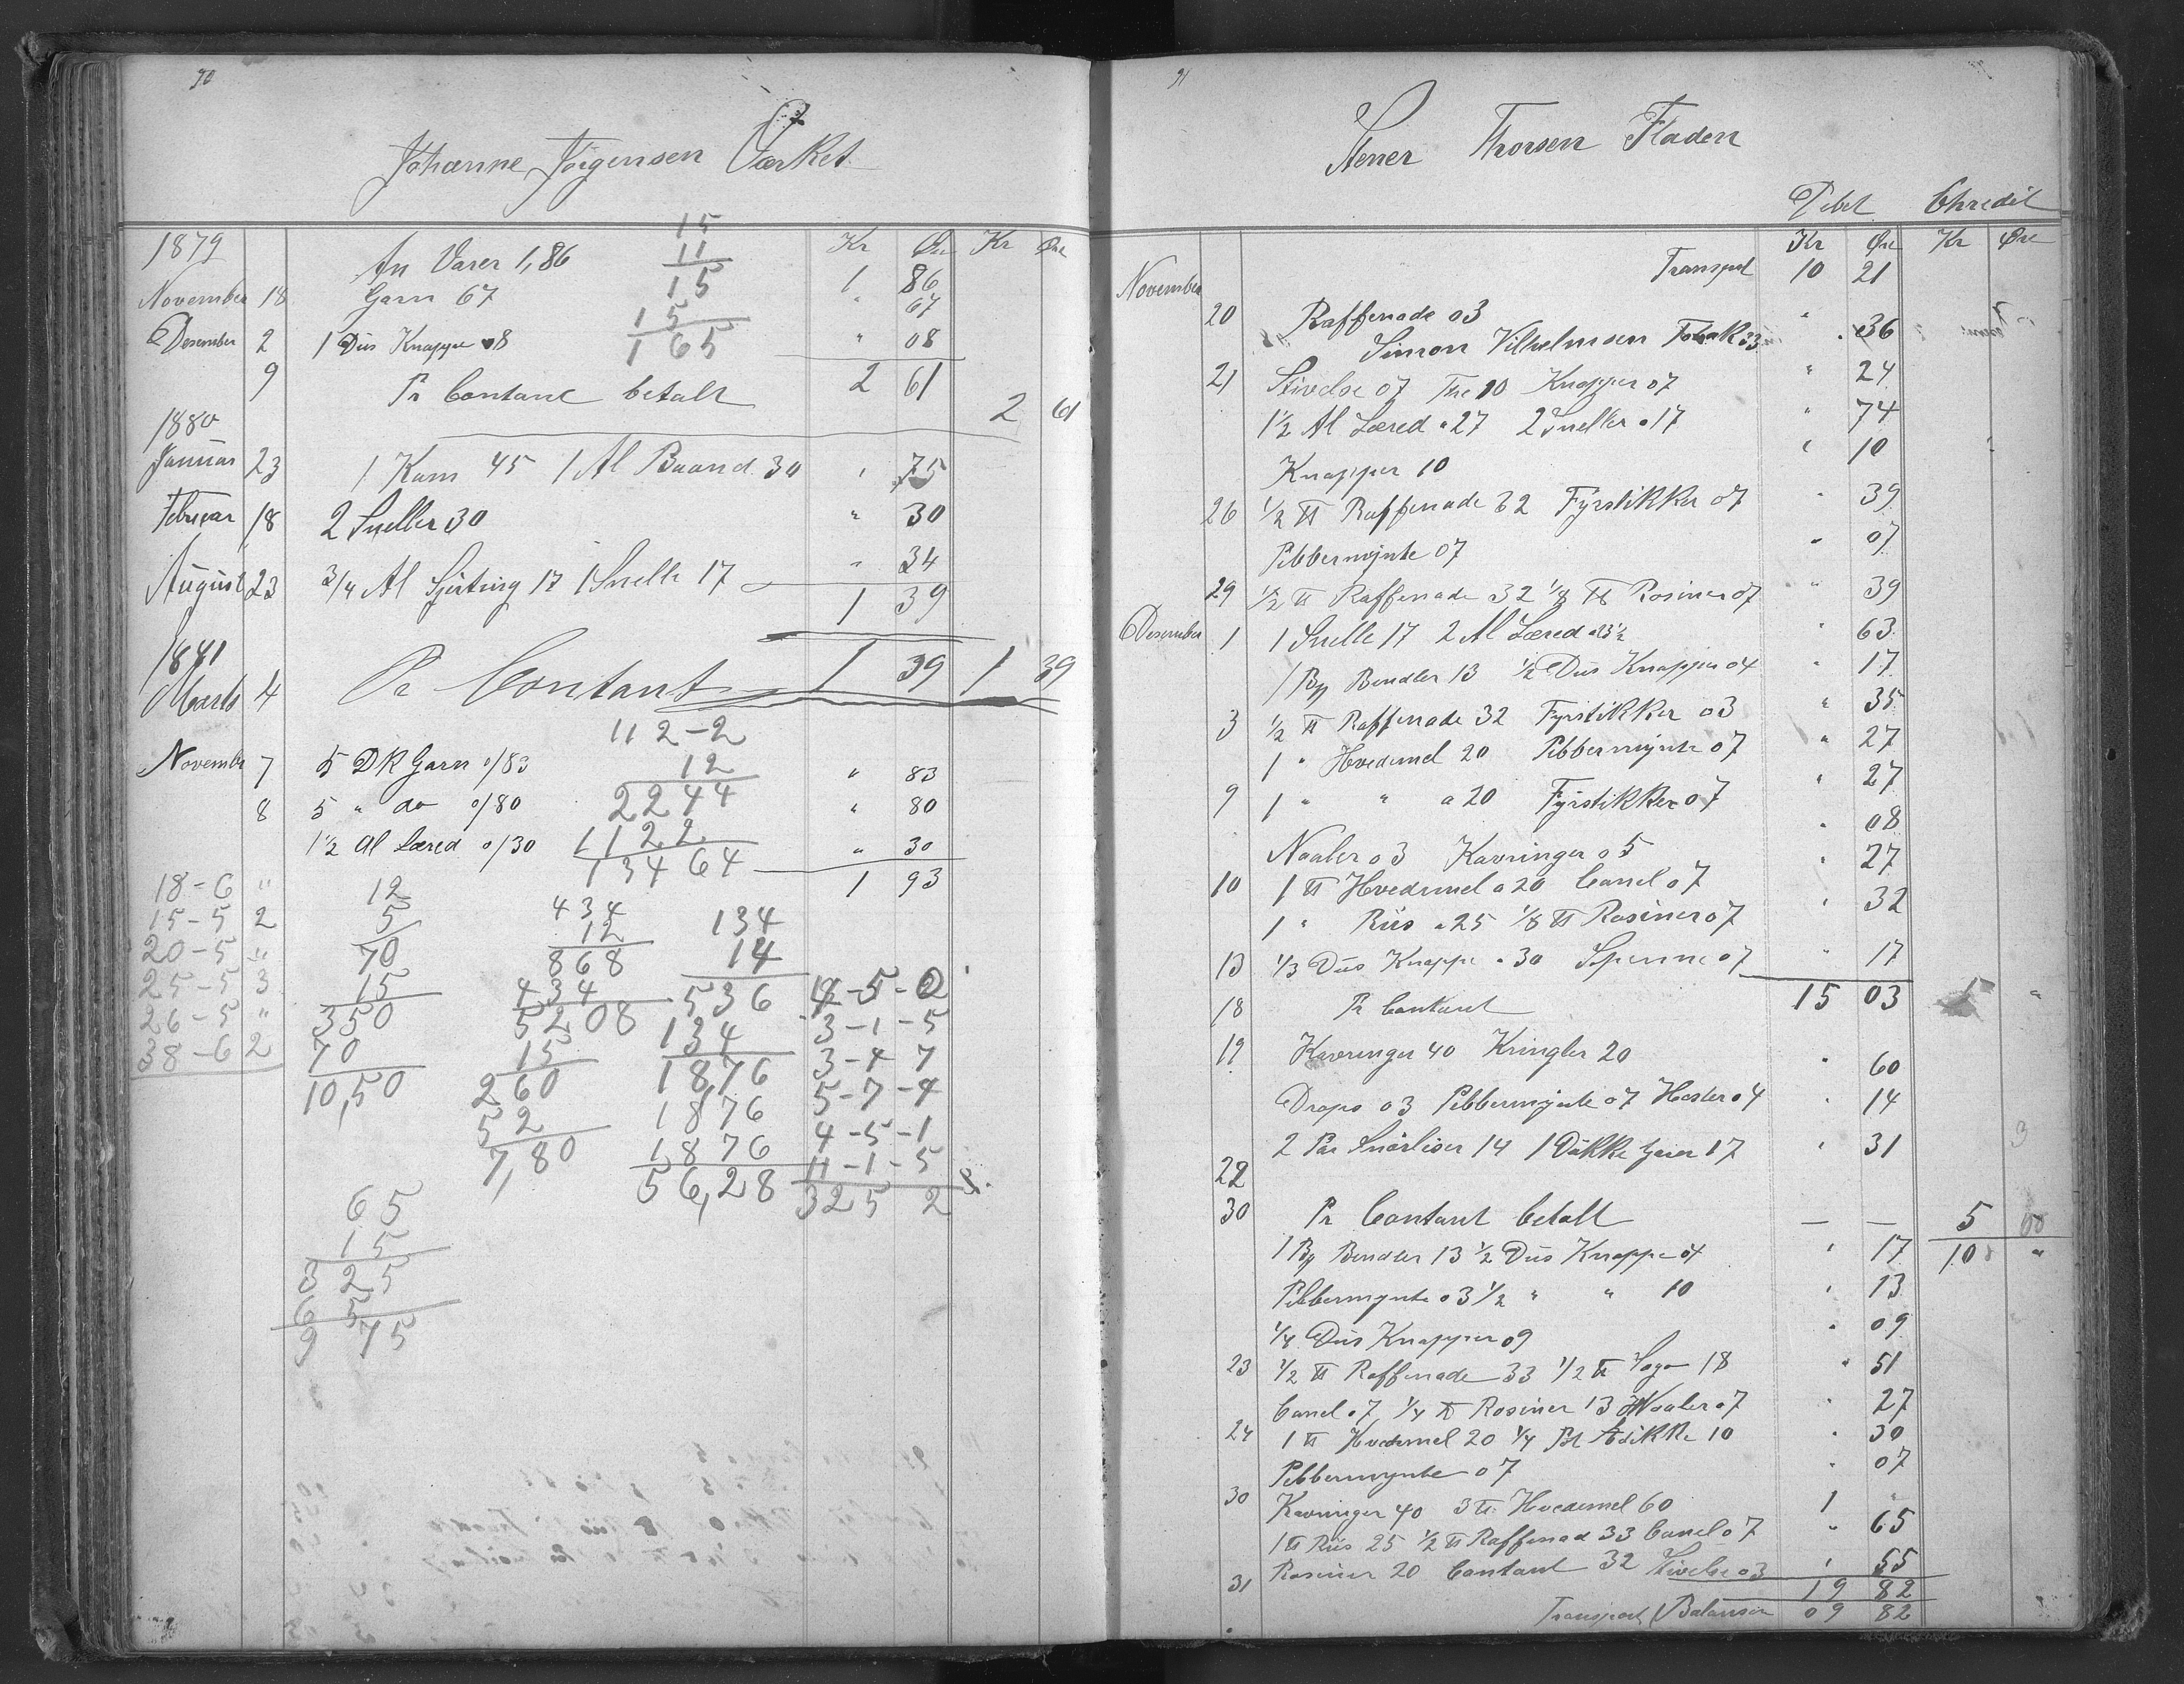 90
Johanne Jörgensen Værket
Kr Øre Kr Øre
1879
An Varer 1,86 1 86
November 18 Garn 67 " 67
Desember 2 1 Dus Knappe 08 " 08
15
11
15
15
1 65
2 61
9 Pr Contant betalt 2 61
1880
Januar 23 1 Kam 45 1 Al Baand 30 " 75
Februar 18 2 Sneller 30 " 30
August 23 3/4 Al Sjirting 17 1 Snelle 17 " 34
1 39
1881
Marts 4 Pr Contant 1 39 1 39
November 7 5 DK Garn o/83 " 83
8 5 " do o/80 " 80
1½ Al Læred o/30 " 30
1 93
112-2
12
2244
1122
13464
18-6 "
15-5 2
20-5 "
25-5 3
26-5 "
38-6 2
12
5
70
15
350
70
10,50
434
12
868
434
5208
15
260
52
7,80
134
14
536
134
1876
1876
1876
56,28
4-5-2
3-1-5
3-4 7
5-7-4
4-5-1
11-1-5
325 2
65
15
325
65
9 75
91
Stener Thorsen Fladen
Debet Chredit
Kr Øre Kr Øre
Transport 10 21
November
20 Raffenade 03
Simon Vilhelmsen Tobak 33 " 36
21 Stivelse 07 The 10 Knapper 07 " 24
1½ Al Læred a 27 2 Sneller a 17 " 74
Knapper 10 " 10
26 ½ ℔ Raffenade 32 Fyrstikker 07 " 39
Pebbermynte 07 " 07
29 ½ ℔ Raffenade 32 ⅛ ℔ Rosiner 07 " 39
Desember 1 1 Snelle 17 2 Al Læred a 23½ " 63
1 By Bendler 13 ½ Dus Knapper 04 " 17
3 ½ ℔ Raffenade 32 Fyrstikker 03 " 35
1 " Hvedemel 20 Pebbermynte 07 " 27
9 1 " " a 20 Fyrstikker 07 " 27
Naaler 03 Kavringer 05 " 08
10 1 ℔ Hvedemel a 20 Canel 07 " 27
1 " Riis a 25 ⅛ ℔ Rosiner 07 " 32
13 ⅓ Dus Knappe a 30 Spenne 07 " 17
18 Pr Contant 15 03
19 Kavringer 40 Kringler 20 " 60
Drops 03 Pebbermynte 07 Hester 04 " 14
2 Par Snörliser 14 1 Dukke Garn 17 " 31
22
30 Pr Contant betalt — — 5 00
1 By Bendler 13 ½ Dus Knappe 04 " 17 10 "
Pebbermynte 03 ½ " " 10 " 13
¼ Dus Knapper 09 " 09
23 ½ ℔ Raffenade 33 ½ ℔ Sago 18 " 51
Canel 07 ¼ ℔ Rosiner 13 Naaler 07 " 27
24 1 ℔ Hvedemel 20 ¼ Pt Edikke 10 " 30
Pebbermynte 07 " 07
30 Kavringer 40 3 ℔ Hvedemel 60 1 "
1 ℔ Riis 25 ½ ℔ Raffenad 33 Canel 07 " 65
31 Rosiner 20 Contant 32 Stivelse 03 " 55
19 82
Transport Balanser 09 82